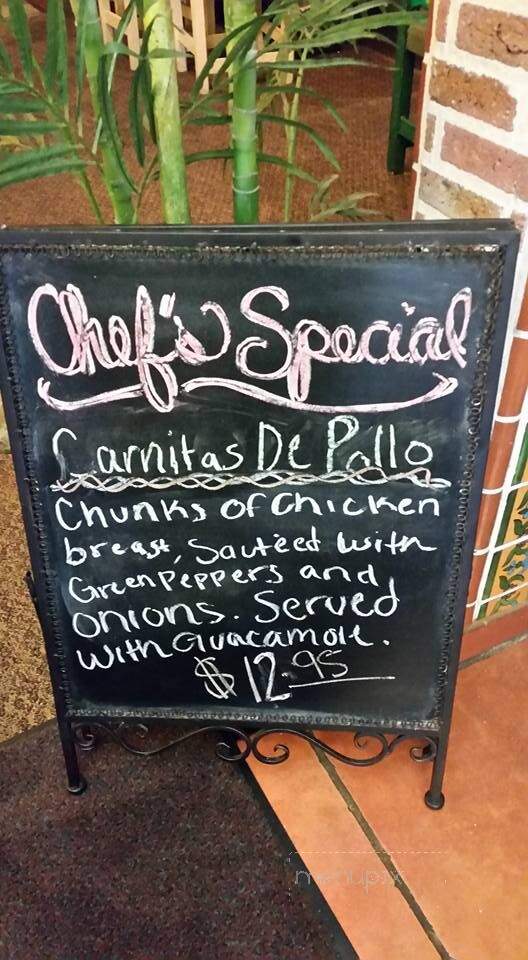 Chef's Special
Carnitas De Pollo
Chunks of Chicken
breast, Sautéed with
Green Peppers and
onions. Served
with Guacamole.
$12.95
menupix